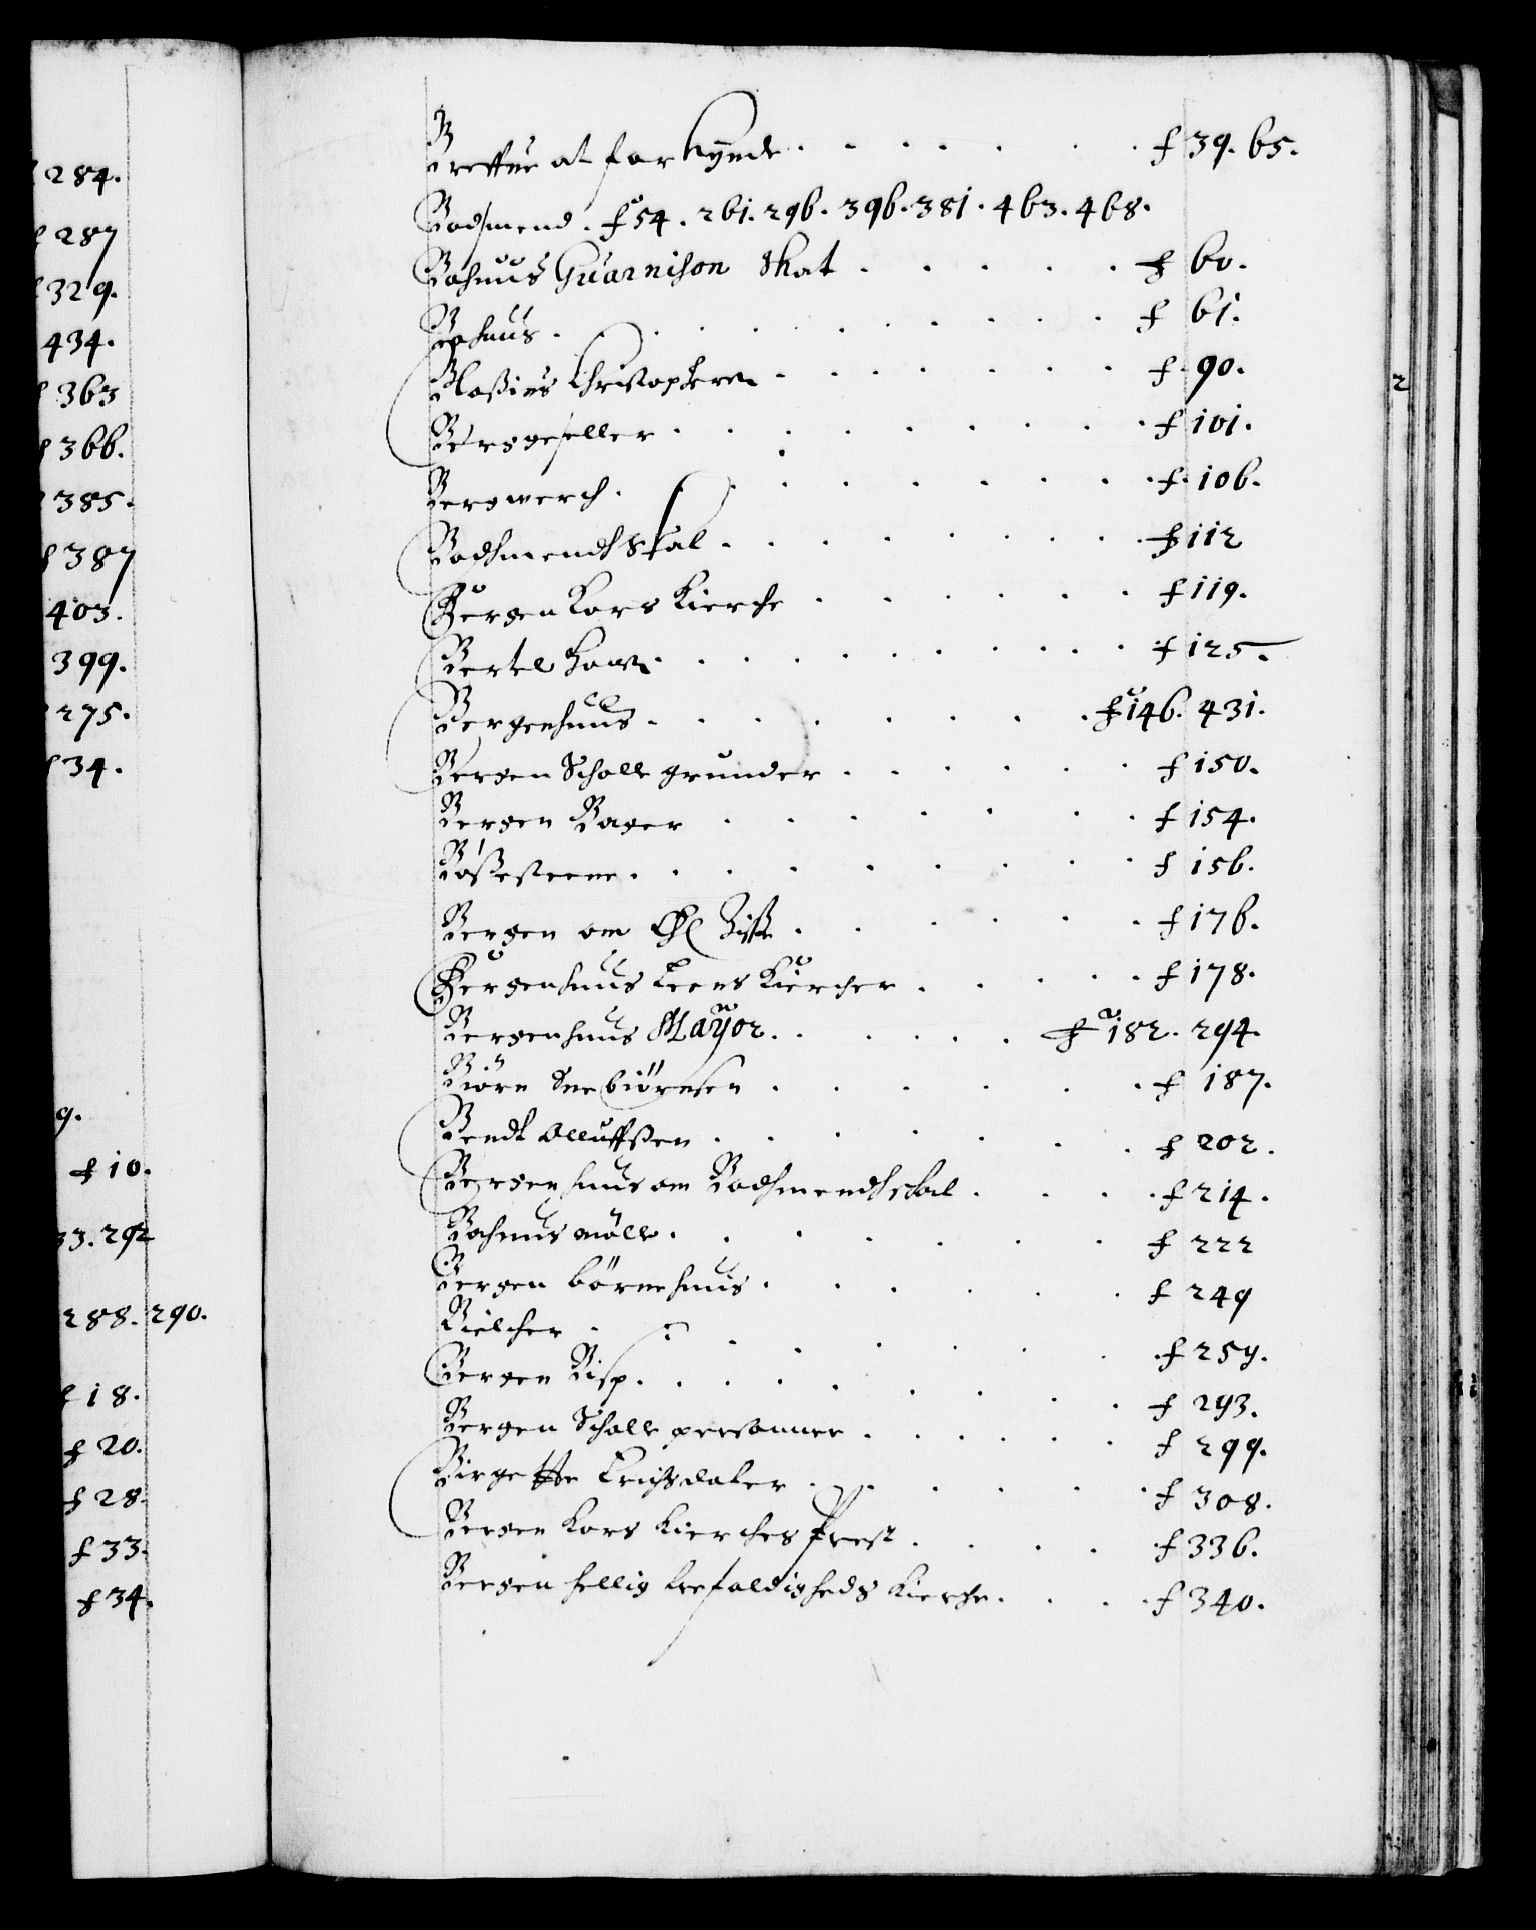 284.
287
329.
434.
f 363
f 366.
385.
f 387
403.
399.
275.
f 34.
9.
f 10.
33. 292
288. 290.
f 18.
f 20.
f 28.
f 33.
f 34.
Breffue at forkynde . . . . . . f 39. 65.
Baadsmend . f 54. 261. 296. 396. 381. 463. 468.
Bahuus Guarnison Skat . . . . . f 60.
Bahuus . . . . . . . . . f 61.
Blasius Christophersen . . . . . . f 90.
Berggeseller . . . . . . . . f 101.
Bergwerch . . . . . . . . f 106.
Baadsmendt Skat . . . . . . . . f 112
Bergen Kors Kierche . . . . . . f 119.
Bertel . . . . . . . . . f 125.
Bergenhuus . . . . . . . f 146. 431.
Bergen Scholle grunder . . . . . . f 150.
Bergen Bager . . . . . . . f 154.
Bøsseskerne . . . . . . . . f 156.
Bergen om . . . . . . f 176.
Bergenhuus Leens Kiercher . . . . f 178.
Bergenhuus Mayor . . . . . f 182. 294.
Biørn Suebiørnsen . . . . . . f 187.
Bendt Olluffssen . . . . . . . f 202.
Bergenhuus om Baadsmendt skat . . . . f 214.
Bahuus mølle . . . . . . . f 222
Bergen børnehuus . . . . . . f 249
Bielcher . . . . . . . . f 259.
Bergen Bisp . . . . . . . . f 293.
Bergen Scholle personner . . . . . f 299.
Birgette Erichsdater . . . . . . f 308.
Bergen Kors Kierches Prest . . . . f 336.
Bergen hellig trefaldigheds Kierche . . . f 340.
2